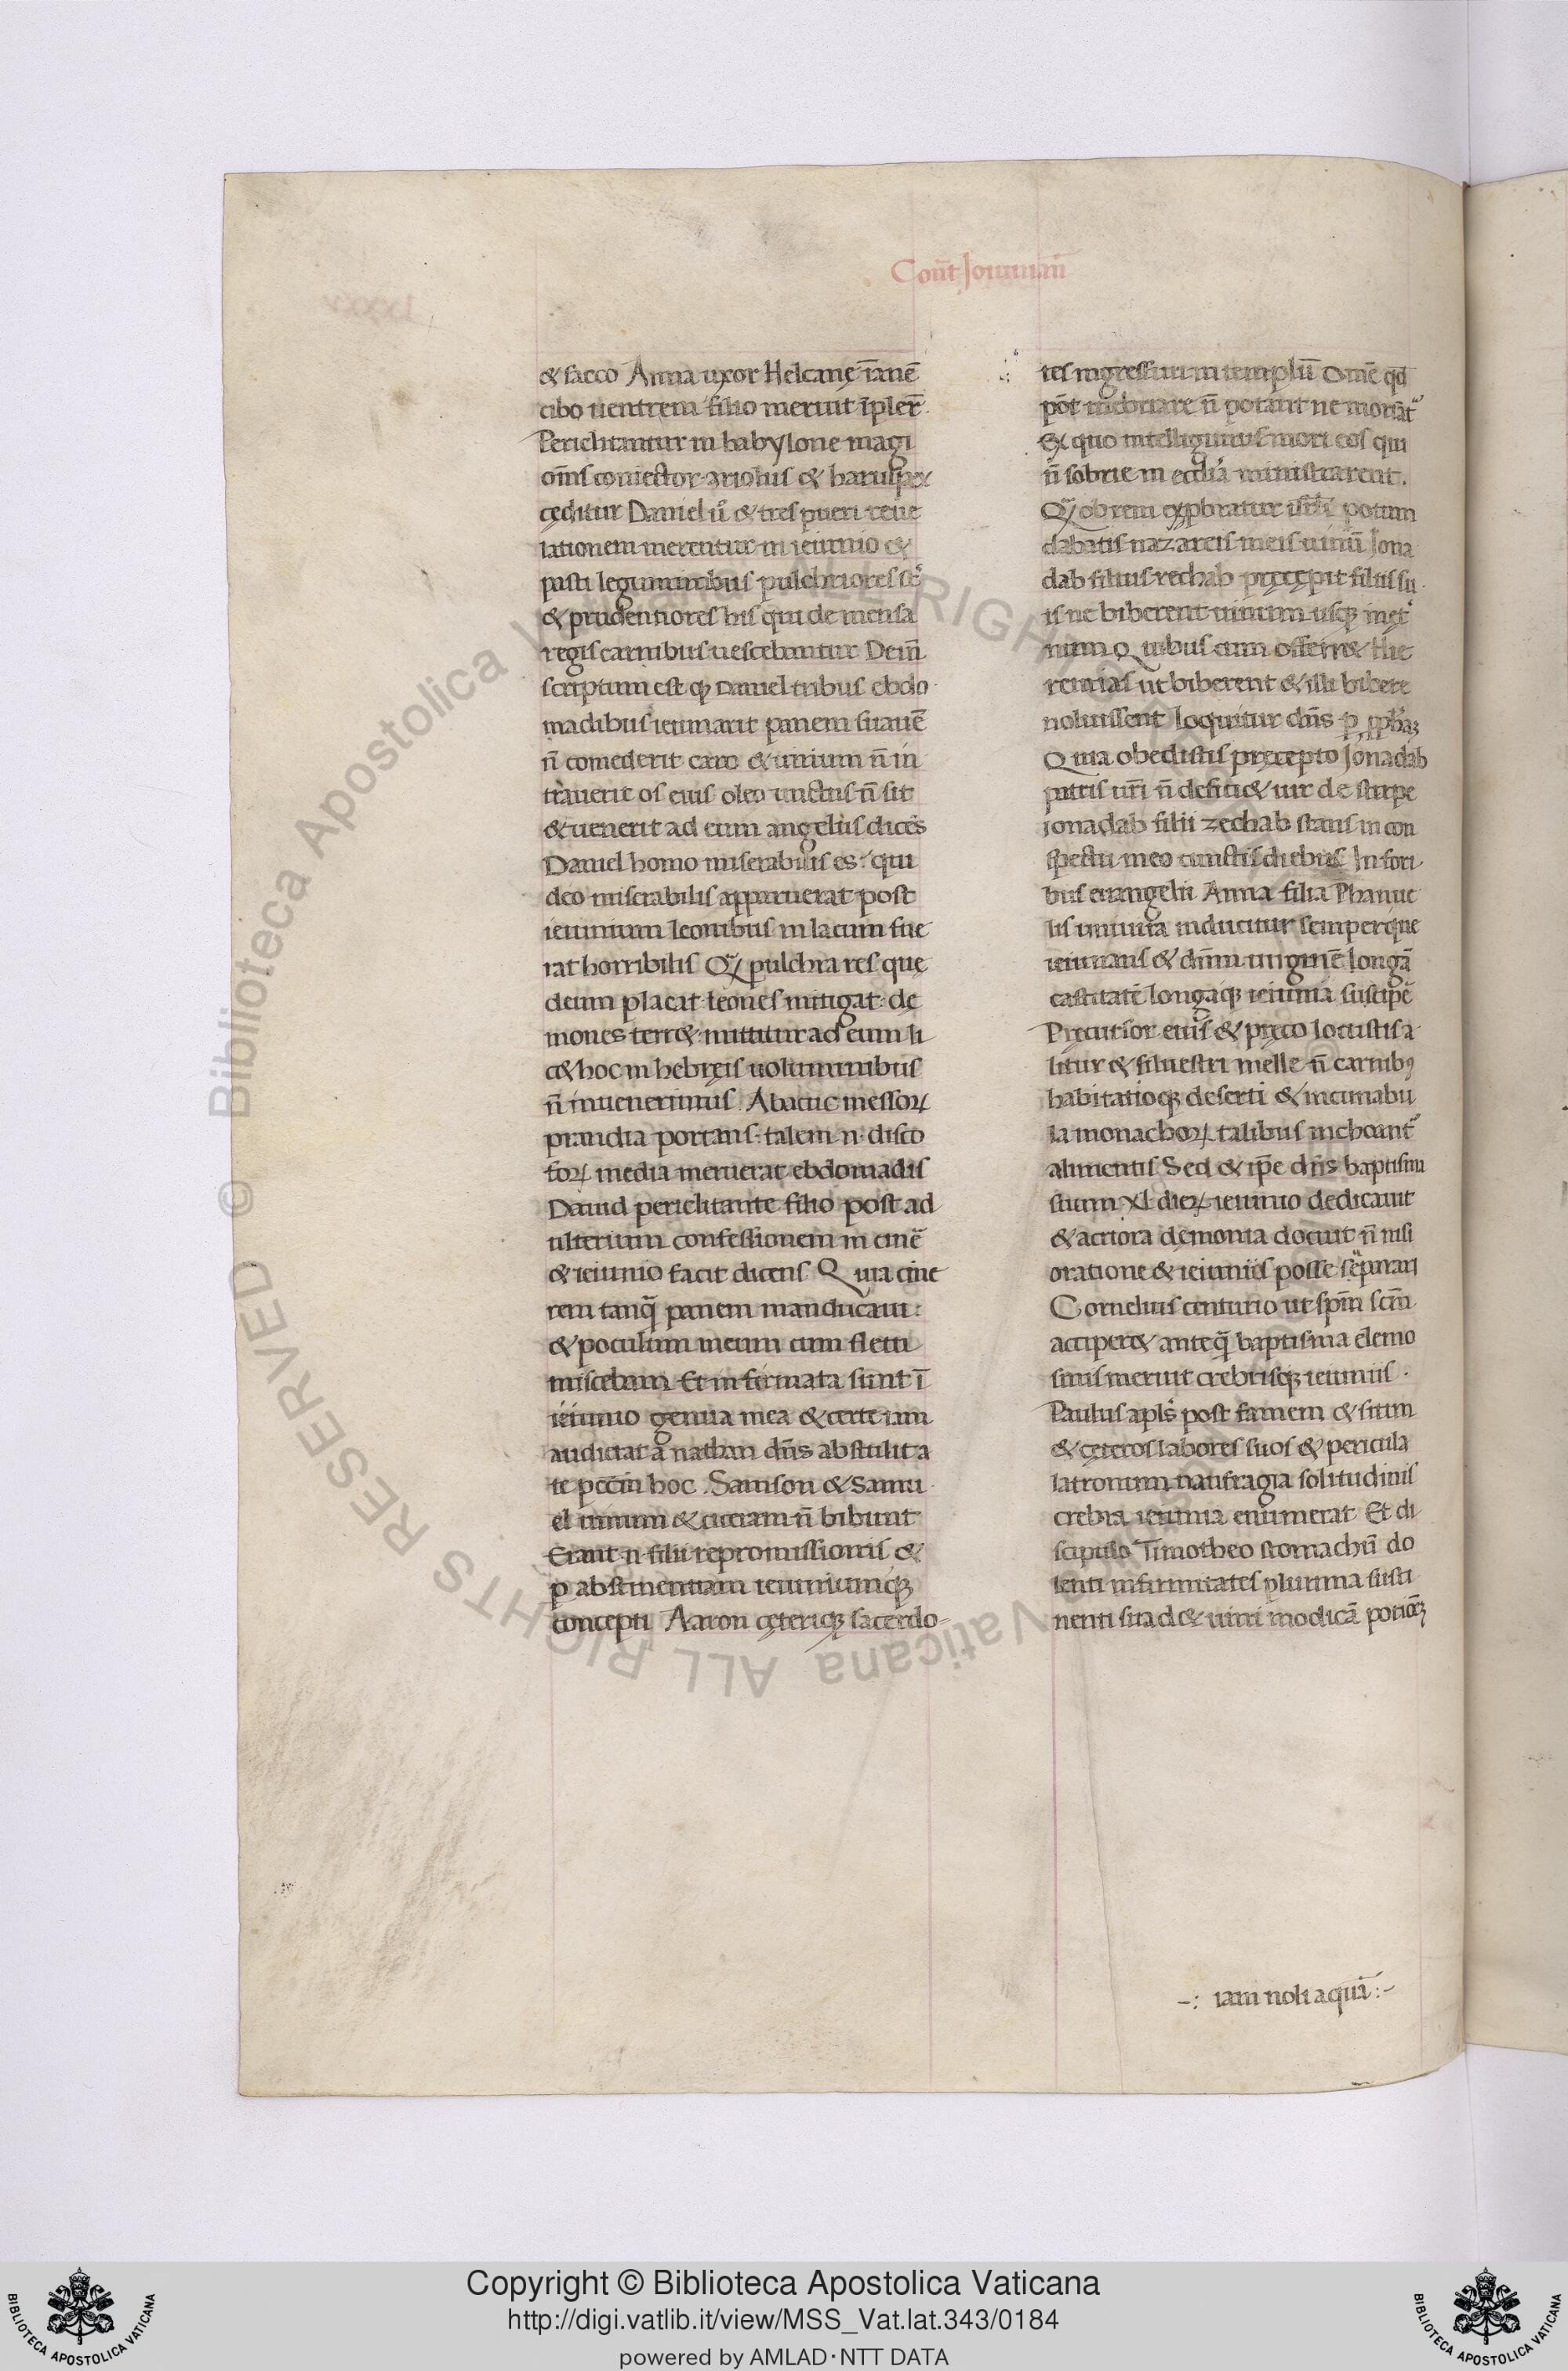 Con̄t Jouinianū
& sacco Anna uxor Helcanę īanē
cibo uentrem filio meruit īpler̄
Periclitantur in babylone magi
om̄s coniector ariolus & haruspex
cęditur Daniel ū & tres pueri reue
lationem merentur in ieiunio &
pasti leguminibus pulchriores st̄
& prudentiores his qui de mensa
regis carnibus uescebantur Dein̄
scriptum est qꝫ Daniel tribus ebdo
madibus ieiunarit panem suauē
n̄ comederit caro & uinum n̄ in
trauerit os eius oleo unctus n̄ sit
& uenerit ad eum angelus dicēs
Daniel homo miserabilis es: qui
deo miserabilis apparuerat post
ieiunium leonibus in lacum fue
rat horribilis Quā pulchra res quę
deum placat leones mitigat de
mones terr&: mittitur ad eum li
c& hoc in hebręis uoluminibus
n̄ inuenerimus Abacuc messoꝝ
prandia portans: talem n. disco
foꝝ media meruerat ebdomadis
Dauid periclitante filio post ad
ulterium confessionem in cinē
& ieiunio facit dicens Quia cine
rem tanq̄ panem manducaui:
& poculum meum cum fletu
miscebam Et infirmata sunt ī
ieiunio genua mea & certe iam
audierat a nathan dn̄s abstulit a
te pcc̄m hoc. Samson & Samu
el uinum & ciceram n̄ bibunt
Erant n. filii repromissionis &
ꝑ abstinentiam ieiuniumqꝫ
concepti Aaron cęteriqꝫ sacerdo-
tes ingressuri in templū omē qd̄
pōt inebriare n̄ potant ne moriāt᷑
Ex quo intelligimus mori eos qui
n̄ sobrie in eccl̄ia ministrarent.
Quā ob rem exprobratur isrl̄i potum
dabatis nazareis meis uinū Jona
dab filius rechab pręcepit filiis su
is ne biberent uinum usqꝫ in ęt̄
num Quibus cum offerr& Hie
remias ut biberent & illi bibere
noluissent loquitur dn̄s ꝑ ꝓph̄aꝫ
Quia obedistis pręcepto Jonadab
patris ur̄i n̄ defici& uir de stirpe
ionadab filii zechab stans in con
spectu meo cunctis diebus In fori
bus euangelii Anna filia Phanue
lis uniuira inducitur semperque
ieiunans & dn̄m uirginē longā
castitatē longaqꝫ ieiunia suscipē
Pręcursor eius & pręco locustis a
litur & siluestri melle n̄ carnibꝰ
habitatioqꝫ deserti & incunabu
la monachoꝝ talibus inchoant᷑
alimentis Sed & ip̄e dn̄s baptisma
suum XL dieꝝ ieiunio dedicauit
& acriora demonia docuit n̄ nisi
oratione & ieiuniis posse sepārari
Cornelius centurio ut sp̄m scm̄
acciper& anteq̄ baptisma elemo
sinis meruit crebrisqꝫ ieiuniis.
Paulus apl̄s post famem & sitim
& cęteros labores suos & pericula
latronum naufragia solitudinis
crebra ieiunia enumerat Et di
scipulo Timotheo stomachū do
lenti infirmitates plurima susti
nenti suad& uini modicā potionꝫ
-: iam noli aquā :-
Copyright © Biblioteca Apostolica Vaticana
http://digi.vatlib.it/view/MSS_Vat.lat.343/0184
powered by AMLAD·NTT DATA